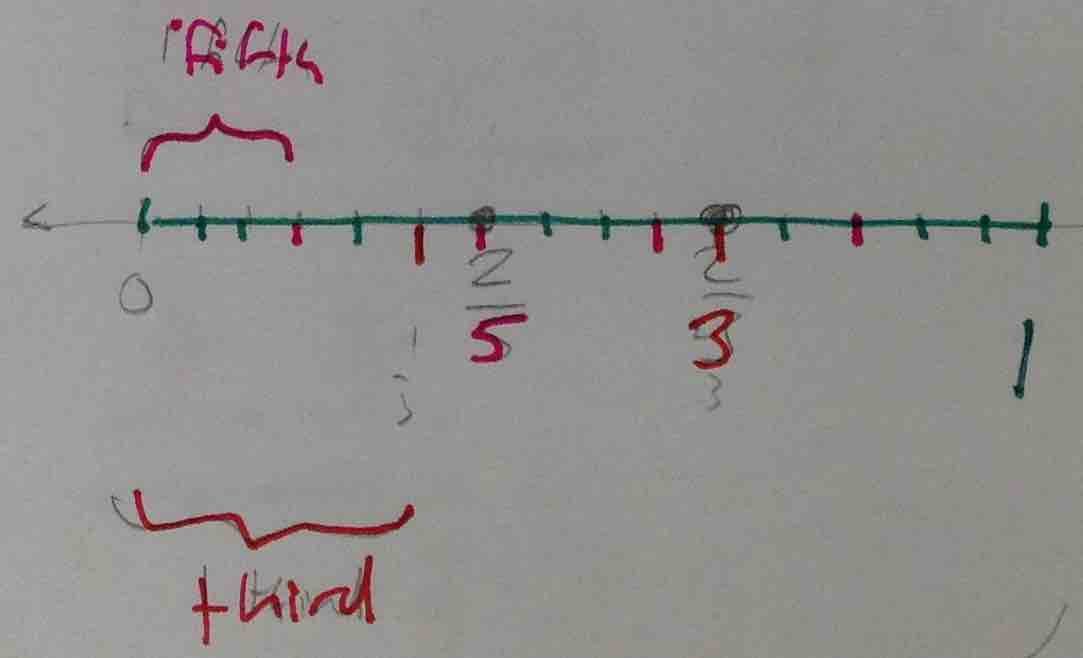 fifth
0
2
5
2
3
3
1
third